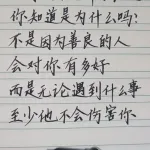 你知道是为什么吗?
不是因为善良的人
会对你有多好
而是无论遇到什么事
至少他不会伤害你